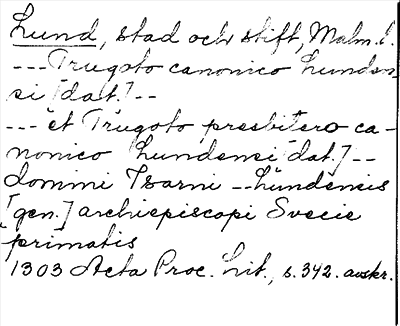 Lund, stad och stift, Malm. l.
--- Trugoto canonico Lunden-
si [dat.] --
--- et Trugoto presbitero ca-
nonico Lundensi [dat.] --
domini Isarni -- Lundensis
[gen.] archiepiscopi Svecie
primatis
1303 Acta Proc. Lit., s. 342. avskr.